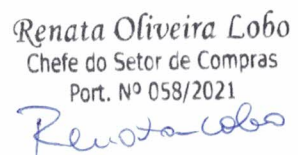 Renata Oliveira Lobo
Chefe do Setor de Compras
Port. Nº 058/2021
Renata Lobo